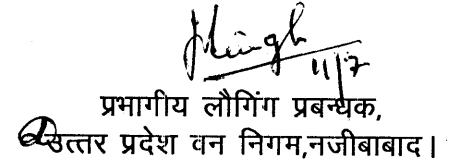 11/7
प्रभागीय लौगिंग प्रबन्धक,
उत्तर प्रदेश वन निगम,नजीबाबाद।